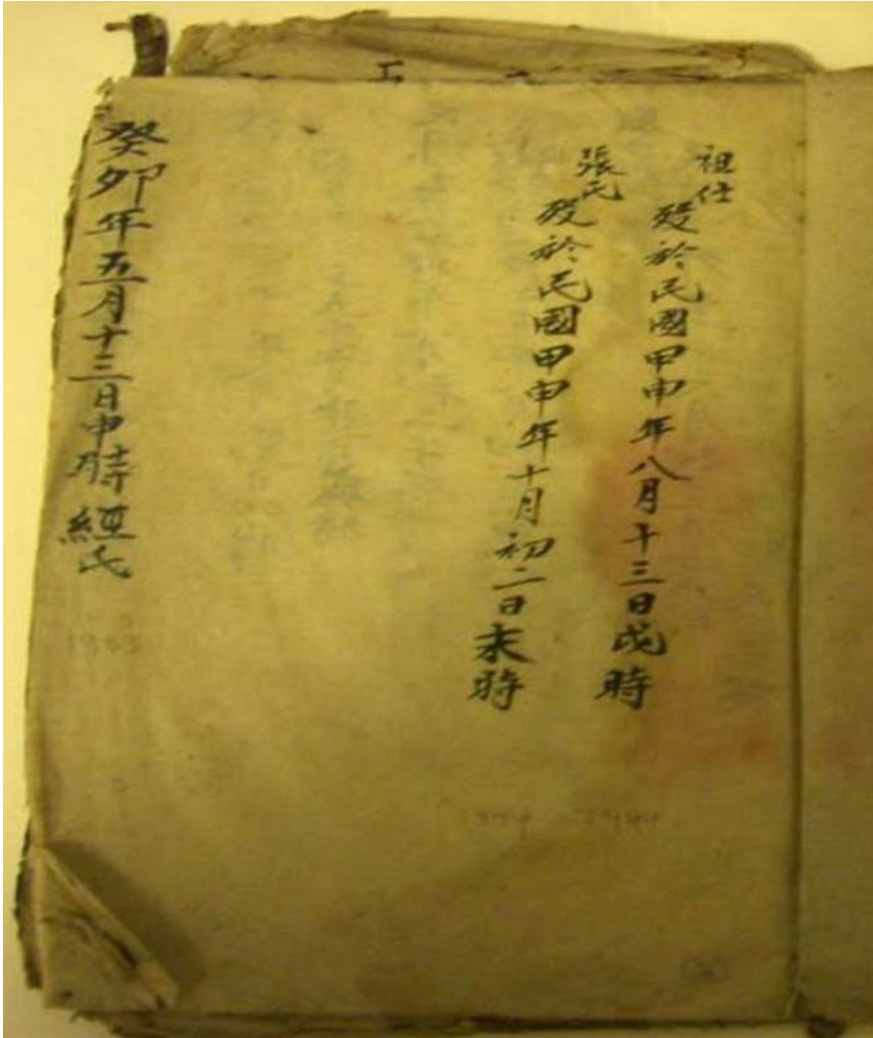 祖任
歿於民國甲申年八月十三日戌時
張氏
歿於民國甲申年十月初二日未時
癸夘年五月十三日申時 經氏